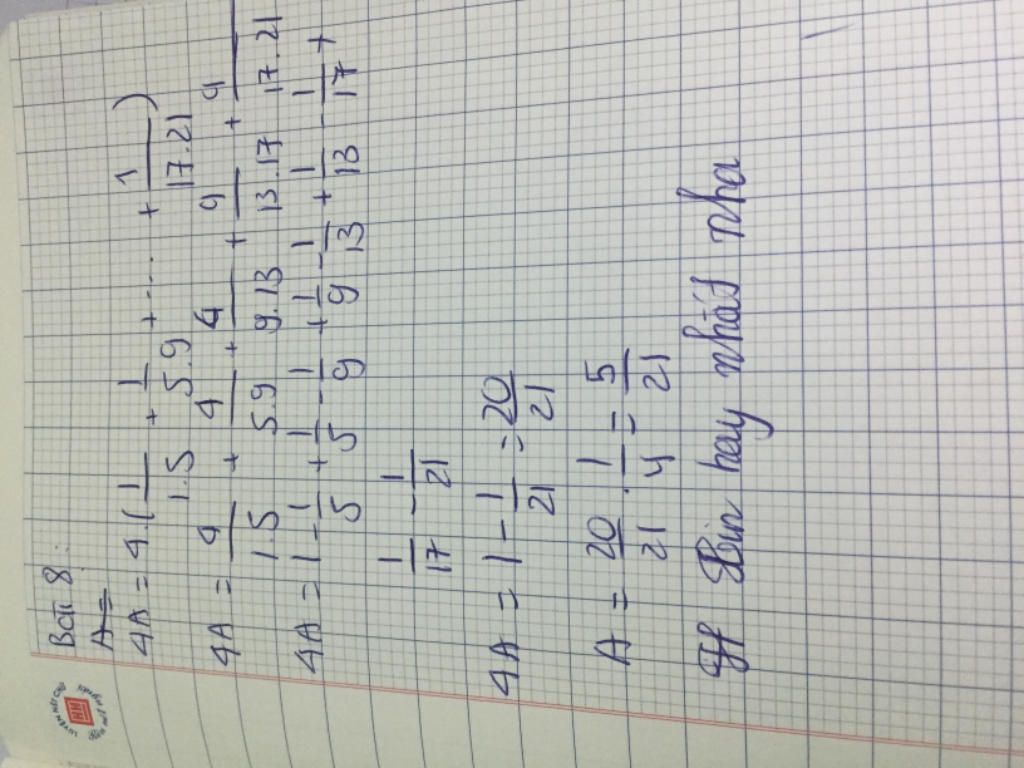 Bài 8:
A =
4A = 4.(1/1.5 + 1/5.9 + .... + 1/17.21)
4A = 4/1.5 + 4/5.9 + 4/9.13 + 4/13.17 + 4/17.21
4A = 1 - 1/5 + 1/5 - 1/9 + 1/9 - 1/13 + 1/13 - 1/17 +
1/17 - 1/21
4A = 1 - 1/21 = 20/21
A = 20/21 . 1/4 = 5/21
Xin hay nhất nha